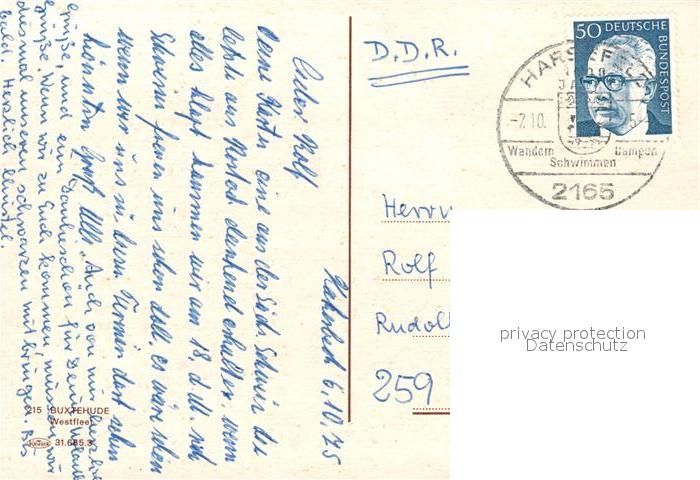 Katerbeck 6.10.75
Lieber Rolf
Deine Karten eine aus der Stadt Schwerin die
letzte aus Rostock dankend erhalten. wenn
alles klappt kommen wir am 18. d. M. nach
Schwerin freuen uns schon doll, es wäre schön
wenn wir uns zu diesem Termin dort sehen
könnten. Gruß Ulli. Auch von mir herzliche
Grüße, und ein Dankeschön für Deine Urlaubs
grüße. Wenn wir zu Euch kommen, müssen wir
diesmal unseren schwarzen mitbringen. Bis
bald. Herzlich
D.D.R.
Herrn
Rolf
Rudol
259
50 DEUTSCHE
BUNDESPOST
HARSEFELD
-7.10.
Wandern
Schwimmen
Campen
2165
215 BUXTEHUDE
Westfleet
31.685.3
privacy protection
Datenschutz